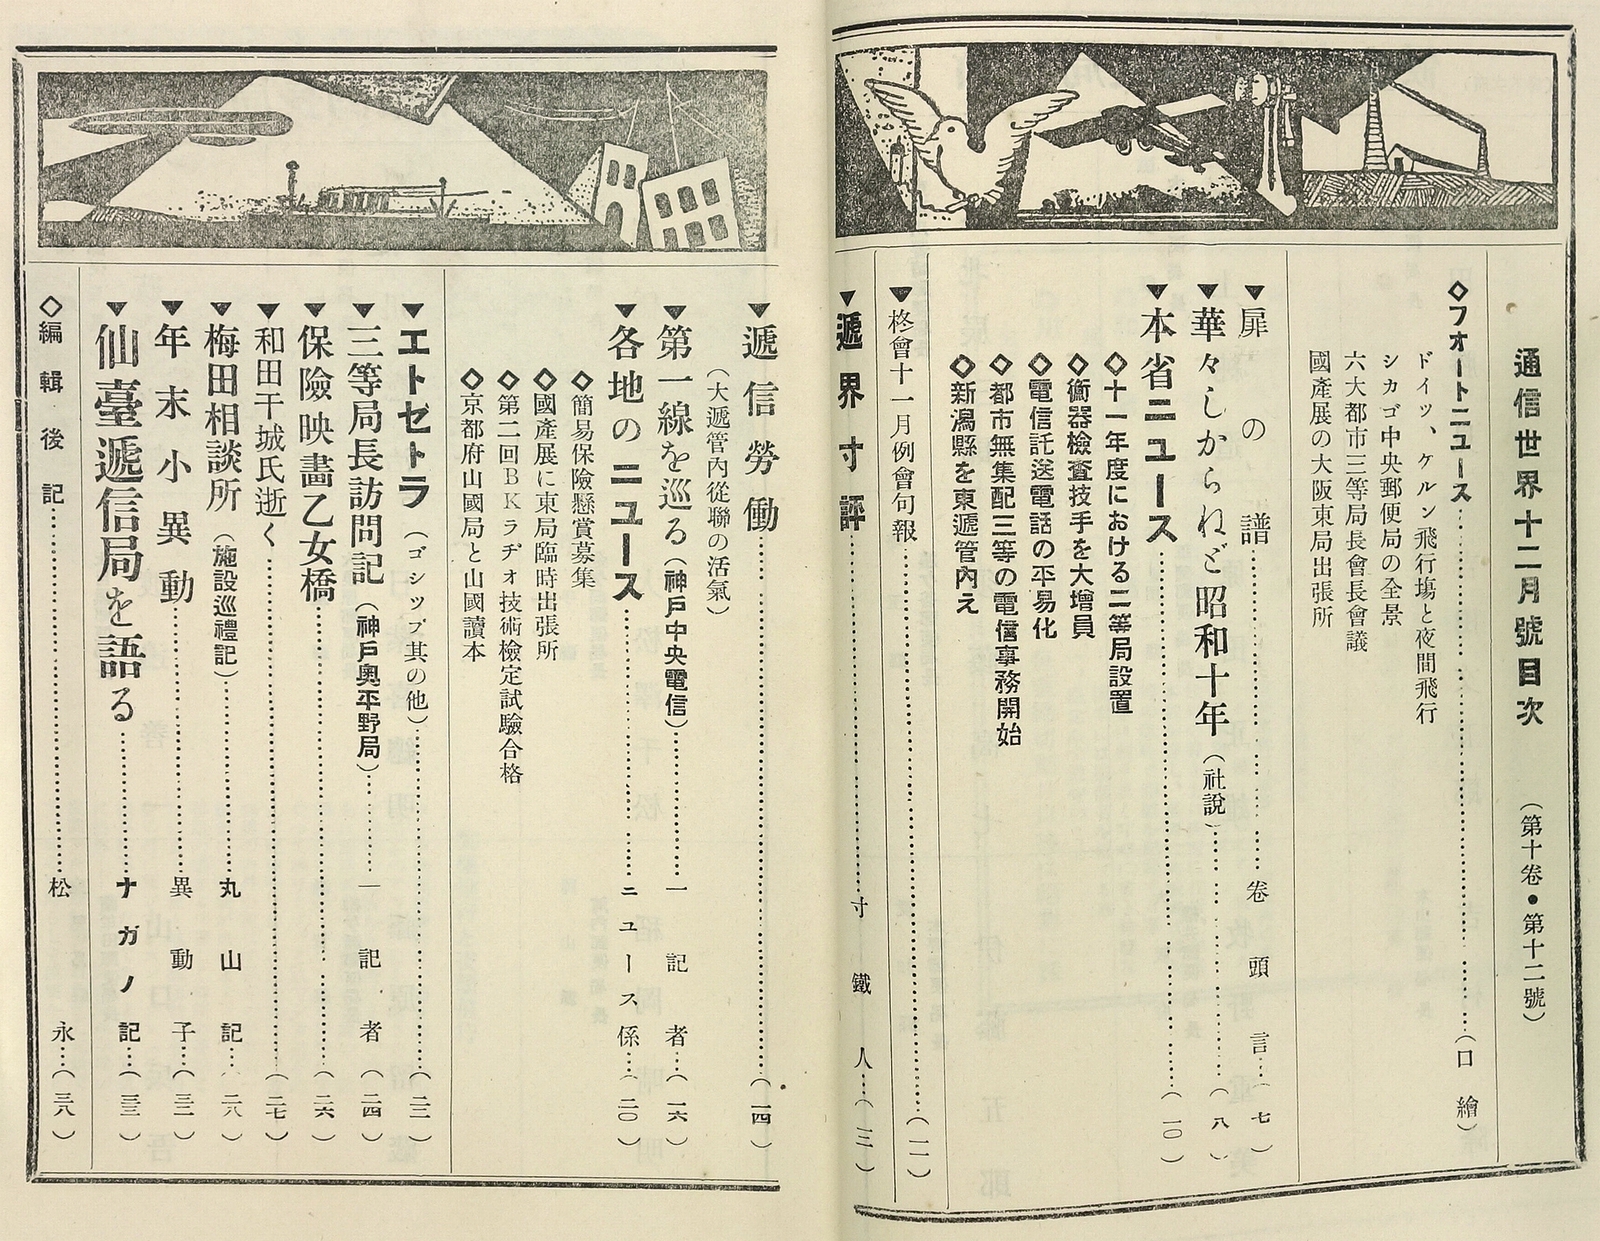 通信世界十二月號目次　（第十卷・第十二號）
◇フォートニュース……（口繪）
ドイツ、ケルン飛行塲と夜間飛行
シカゴ中央郵便局の全景
六大都市三等局長會長會議
國產展の大阪東局出張所
▼扉の譜……卷頭言…（七）
▼華々しからねど昭和十年（社說）……（八）
▼本省ニュース……（一〇）
◇十一年度における二等局設置
◇衡器檢査技手を大增員
◇電信託送電話の平易化
◇都市無集配三等の電信事務開始
◇新潟縣を東遞管內え
▼柊會十一月例會句報……（一一）
▼遞界寸評……寸鐵人…（一三）
▼遞信勞働……（一四）
（大遞管內從聯の活氣）
▼第一線を巡る（神戶中央電信）……一記者…（一六）
▼各地のニュース……ニュース係…（二〇）
◇簡易保險懸賞募集
◇國產展に東局臨時出張所
◇第二回ＢＫラヂォ技術檢定試驗合格
◇京都府山國局と山國讀本
▼エトセトラ（ゴシップ其の他）……（二二）
▼三等局長訪問記（神戶奧平野局）……一記者…（二四）
▼保險映畵乙女橋……（二六）
▼和田干城氏逝く……（二七）
▼梅田相談所（施設巡禮記）……丸山記…（二八）
▼年末小異動……異動子…（三二）
▼仙臺遞信局を語る……ナガノ記…（三三）
◇編輯後記……松永…（三八）